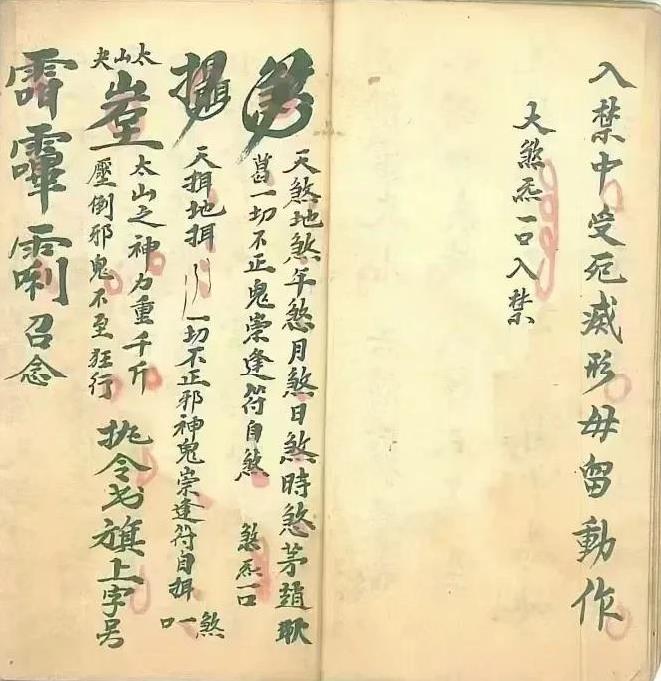 入禁中受死滅形毋留動作
大煞炁一口入禁
天煞地煞年煞月煞日煞時煞茅趙耿
葛一切不正鬼祟逢符自煞 煞炁一口
天挕地挕 一切不正邪神鬼祟逢符自挕 煞一口
太山夫
太山之神力重千斤
壓倒邪鬼不至狂行
挑令书旗上字号
召念